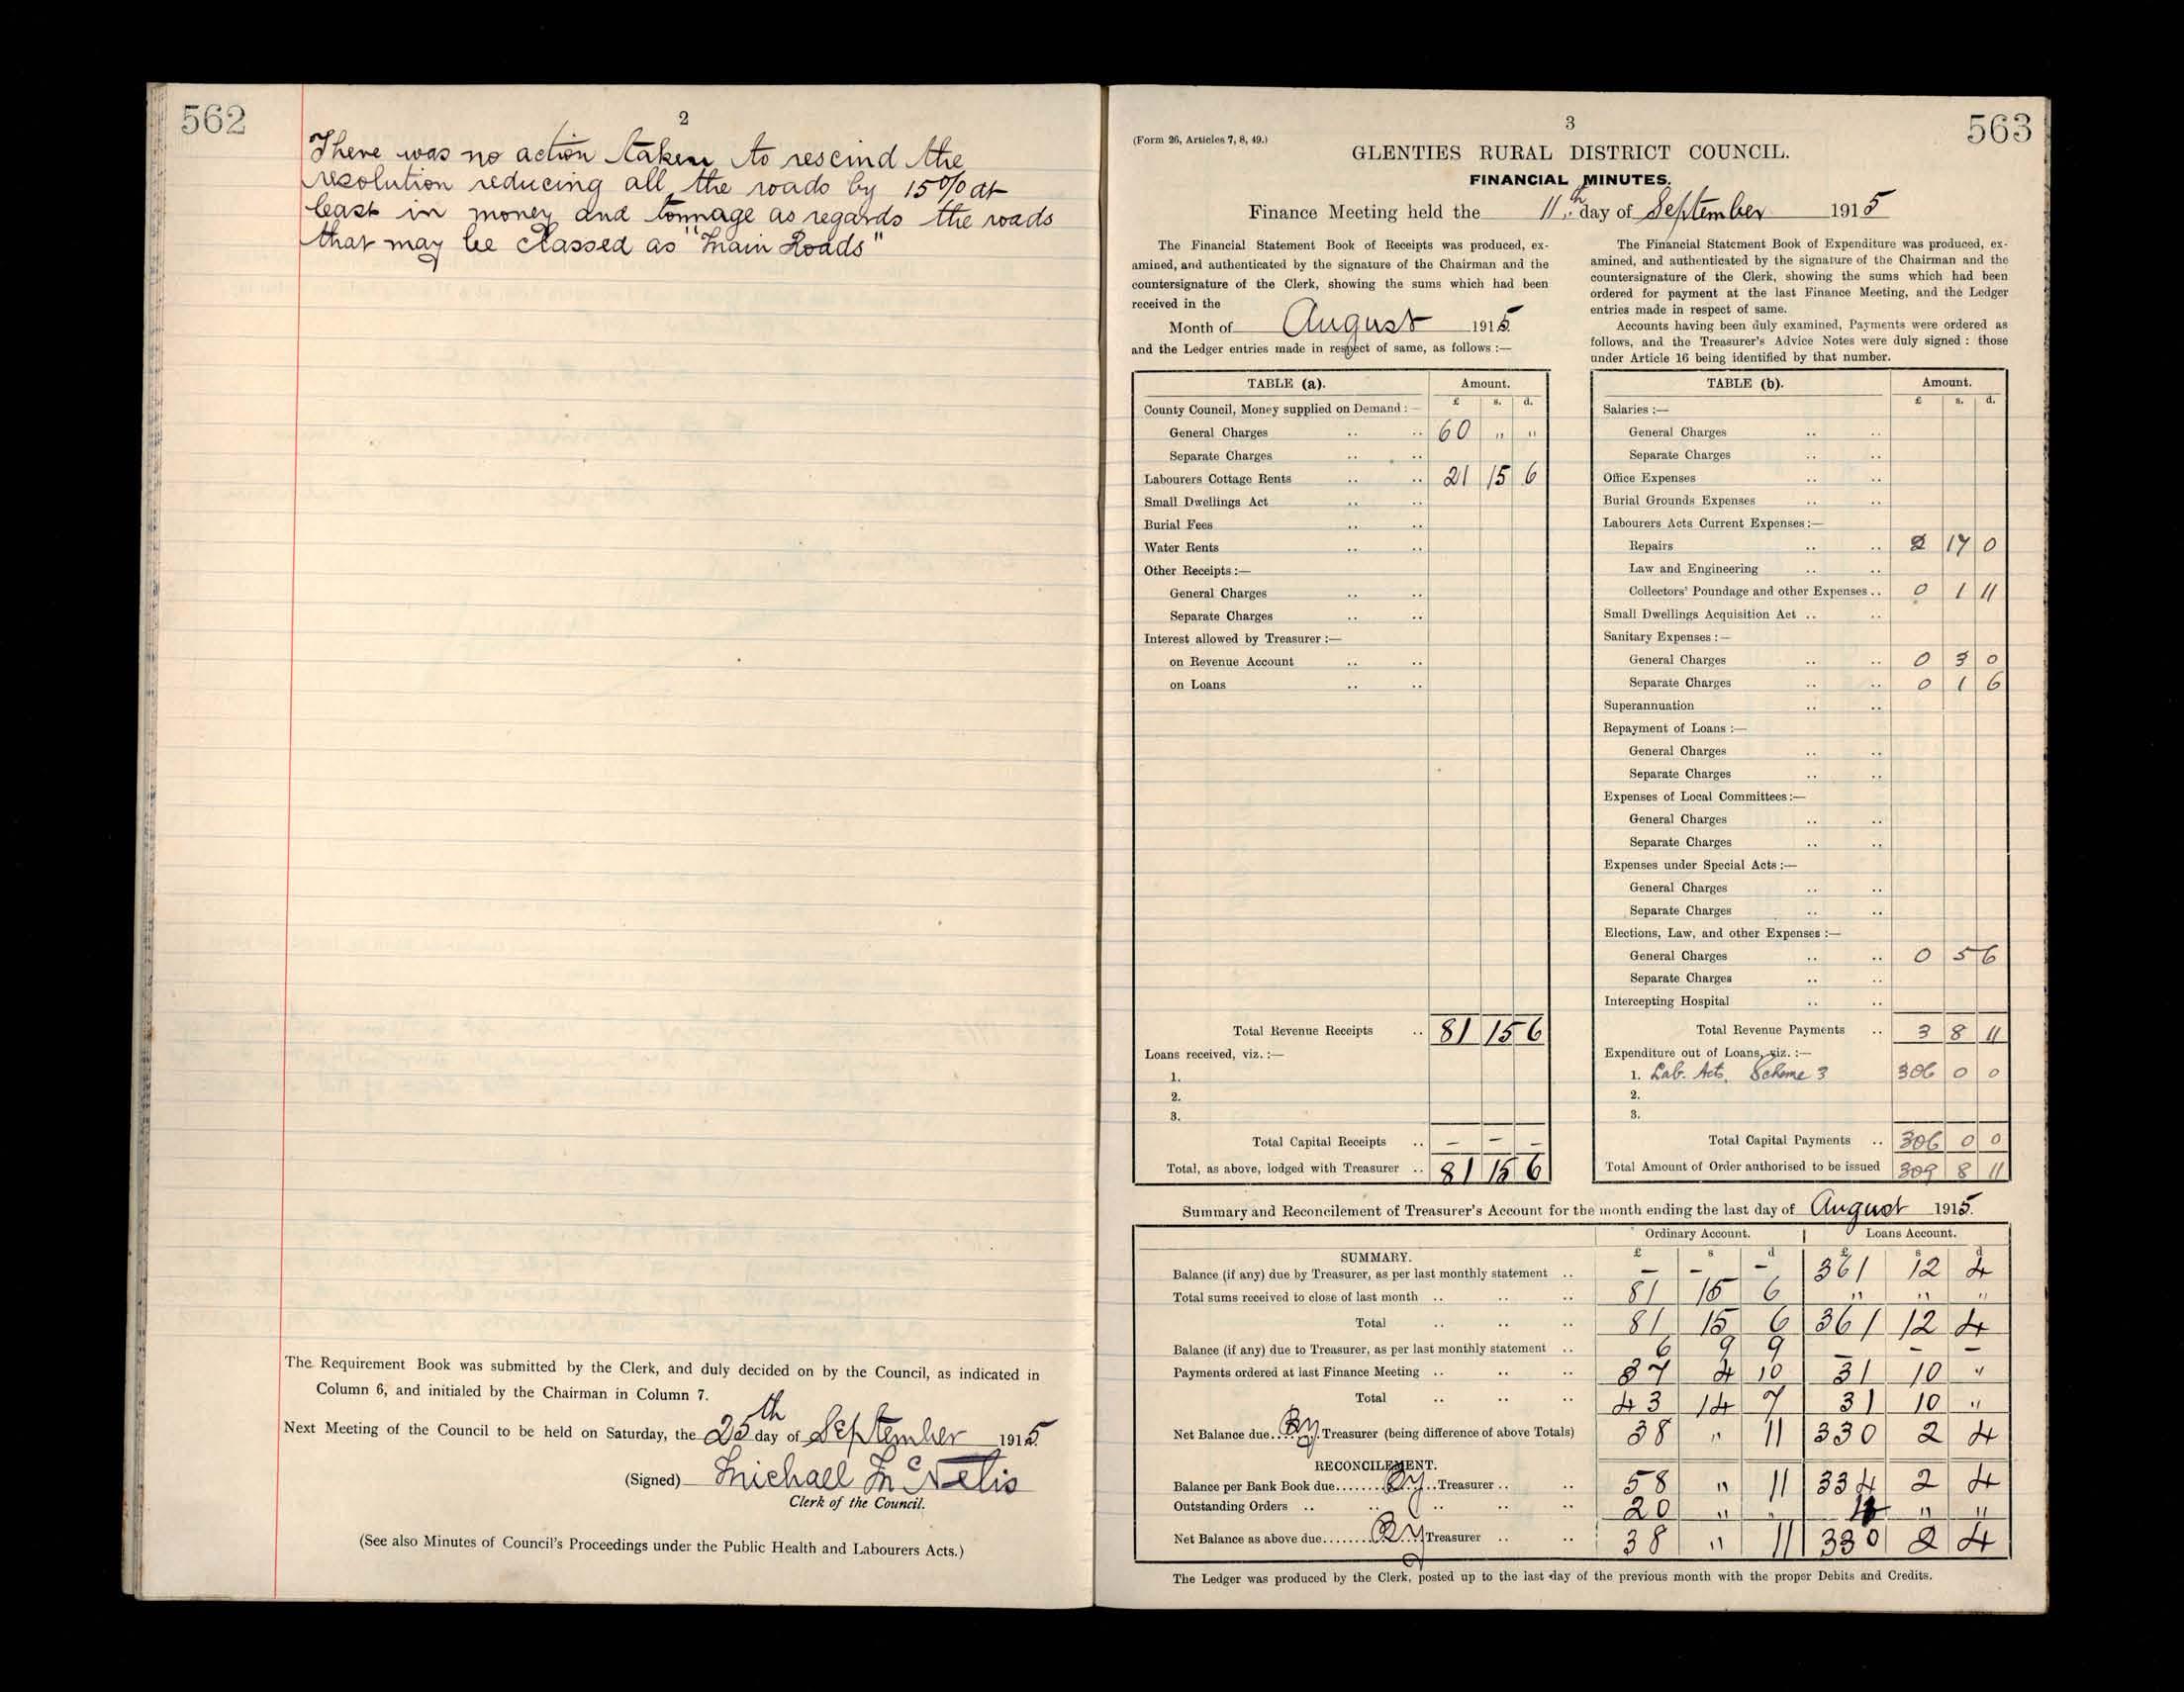 562
2
There was no action taken to rescind the
resolution reducing all the roads by 15% at
least in money and tonnage as regards the roads
that may be classed as "Main Roads"
The Requirement Book was submitted by the Clerk, and duly decided on by the Council, as indicated in
Column 6, and initialed by the Chairman in Column 7.
Next Meeting of the Council to be held on Saturday, the 25th day of September 1915
(Signed) Michael McNelis
Clerk of the Council.
(See also Minutes of Council's Proceedings under the Public Health and Labourers Acts.)
3
563
(Form 26, Articles 7, 8, 49.)
GLENTIES RURAL DISTRICT COUNCIL.
FINANCIAL MINUTES.
Finance Meeting held the 11th day of September 1915
The Financial Statement Book of Receipts was produced, ex-
amined, and authenticated by the signature of the Chairman and the
countersignature of the Clerk, showing the sums which had been
received in the
Month of August 1915
and the Ledger entries made in respect of same, as follows :—
TABLE (a). Amount.
£ s. d.
County Council, Money supplied on Demand :—
General Charges .. .. 60 " "
Separate Charges .. ..
Labourers Cottage Rents .. .. 21 15 6
Small Dwellings Act .. ..
Burial Fees .. ..
Water Rents .. ..
Other Receipts :—
General Charges .. ..
Separate Charges .. ..
Interest allowed by Treasurer :—
on Revenue Account .. ..
on Loans .. ..
Total Revenue Receipts .. 81 15 6
Loans received, viz. :—
1.
2.
3.
Total Capital Receipts .. — — —
Total, as above, lodged with Treasurer .. 81 15 6
The Financial Statement Book of Expenditure was produced, ex-
amined, and authenticated by the signature of the Chairman and the
countersignature of the Clerk, showing the sums which had been
ordered for payment at the last Finance Meeting, and the Ledger
entries made in respect of same.
Accounts having been duly examined, Payments were ordered as
follows, and the Treasurer's Advice Notes were duly signed : those
under Article 16 being identified by that number.
TABLE (b). Amount.
£ s. d.
Salaries :—
General Charges .. ..
Separate Charges .. ..
Office Expenses .. ..
Burial Grounds Expenses .. ..
Labourers Acts Current Expenses :—
Repairs .. .. 2 17 0
Law and Engineering .. ..
Collectors' Poundage and other Expenses .. 0 1 11
Small Dwellings Acquisition Act .. ..
Sanitary Expenses :—
General Charges .. .. 0 3 0
Separate Charges .. .. 0 1 6
Superannuation .. ..
Repayment of Loans :—
General Charges .. ..
Separate Charges .. ..
Expenses of Local Committees :—
General Charges .. ..
Separate Charges .. ..
Expenses under Special Acts :—
General Charges .. ..
Separate Charges .. ..
Elections, Law, and other Expenses :—
General Charges .. .. 0 5 6
Separate Charges .. ..
Intercepting Hospital .. ..
Total Revenue Payments .. 3 8 11
Expenditure out of Loans, viz. :—
1. Lab. Acts, Scheme 3 306 0 0
2.
3.
Total Capital Payments .. 306 0 0
Total Amount of Order authorised to be issued 309 8 11
Summary and Reconcilement of Treasurer's Account for the month ending the last day of August 1915.
Ordinary Account. Loans Account.
SUMMARY. £ s d £ s d
Balance (if any) due by Treasurer, as per last monthly statement .. — — — 361 12 4
Total sums received to close of last month .. .. .. 81 15 6 " " "
Total .. .. .. 81 15 6 361 12 4
Balance (if any) due to Treasurer, as per last monthly statement .. 6 9 9 — — —
Payments ordered at last Finance Meeting .. .. .. 37 4 10 31 10 "
Total .. .. .. 43 14 7 31 10 "
Net Balance due By Treasurer (being difference of above Totals) 38 " 11 330 2 4
RECONCILEMENT.
Balance per Bank Book due By Treasurer .. .. 58 " 11 334 2 4
Outstanding Orders .. .. .. .. 20 " " 4 " "
Net Balance as above due By Treasurer .. .. 38 " 11 330 2 4
The Ledger was produced by the Clerk, posted up to the last day of the previous month with the proper Debits and Credits.